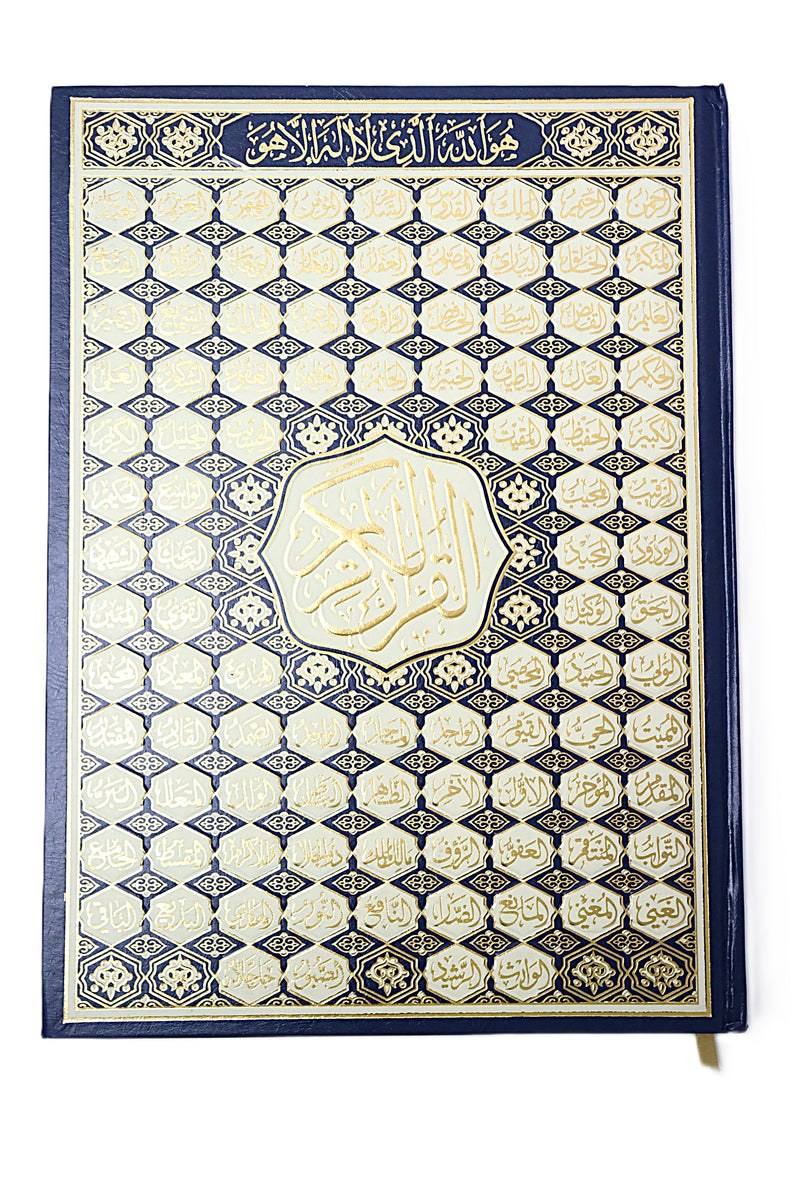 هُوَ ٱللَّهُ ٱلَّذِى لَا إِلَٰهَ إِلَّا هُوَ
الرحمن الرحيم الملك القدوس السلام المؤمن المهيمن العزيز الجبار
المتكبر الخالق البارئ المصور الغفار القهار الوهاب الرزاق الفتاح
العليم القابض الباسط الخافض الرافع المعز المذل السميع البصير
الحكم العدل اللطيف الخبير الحليم العظيم الغفور الشكور العلي
الكبير الحفيظ المقيت الحسيب الجليل الكريم
الرقيب المجيب الواسع الحكيم
القرآن الكريم
الودود المجيد الباعث الشهيد
الحق الوكيل القوي المتين
الولي الحميد المحصي المبدئ المعيد المحيي
المميت الحي القيوم الواجد الماجد الواحد الصمد القادر المقتدر
المقدم المؤخر الأول الآخر الظاهر الباطن الوالي المتعال البر
التواب المنتقم العفو الرؤوف مالك الملك ذو الجلال والإكرام المقسط الجامع
الغني المغني المانع الضار النافع النور الهادي البديع الباقي
الوارث الرشيد الصبور جل جلاله